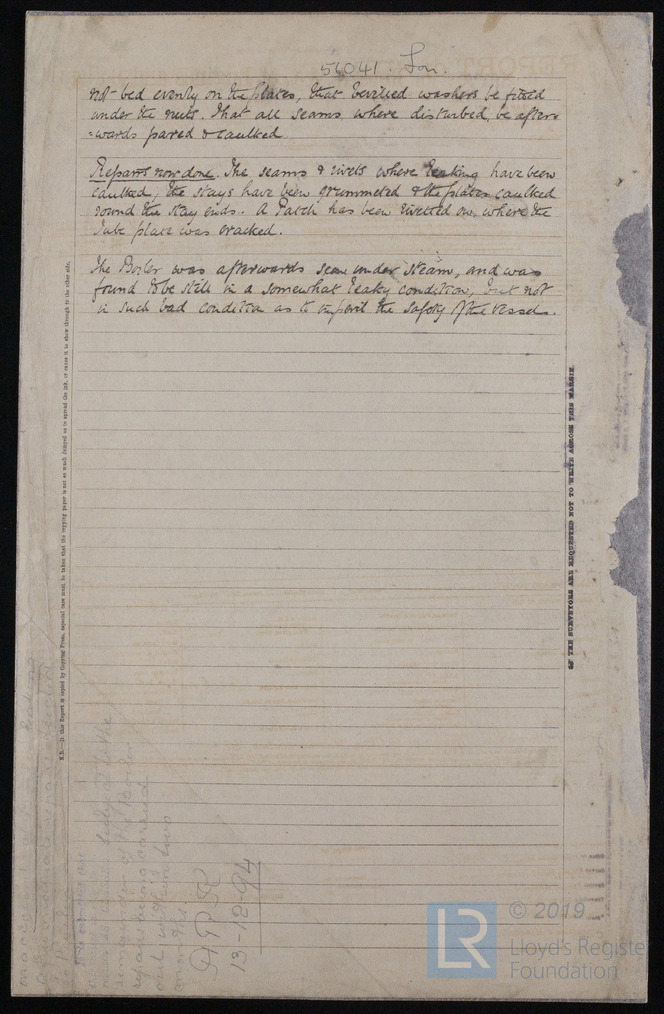 56041. Lon.
not bed evenly on the plates, that bevilled washers be fitted
under the nuts. That all seams where disturbed, be after=
=wards pared & caulked.
Repairs now done. The seams & rivets where leaking have been
caulked, the stays have been grummeted & the plates caulked
round the stay ends. A Patch has been rivetted on, where the
Tube plate was cracked.
The Boiler was afterwards seen under steam, and was
found to be still in a somewhat leaky condition, but not
in such bad condition as to imperil the safety of the vessel.
N.B.—If this Report is copied by Copying Press, especial care must be taken that the copying paper is not so much damped as to spread the ink, or cause it to show through to the other side.
THE SURVEYORS ARE REQUESTED NOT TO WRITE ACROSS THIS MARGIN.
remainder of the Boiler
repairs being carried
out within two
months.
13-12-94
LR
© 2019
Lloyd's Register
Foundation